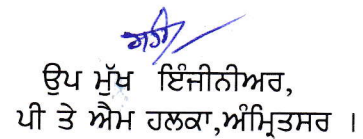 ਸਹੀ/
ਉਪ ਮੁੱਖ ਇੰਜੀਨੀਅਰ,
ਪੀ ਤੇ ਐਮ ਹਲਕਾ,ਅੰਮ੍ਰਿਤਸਰ ।